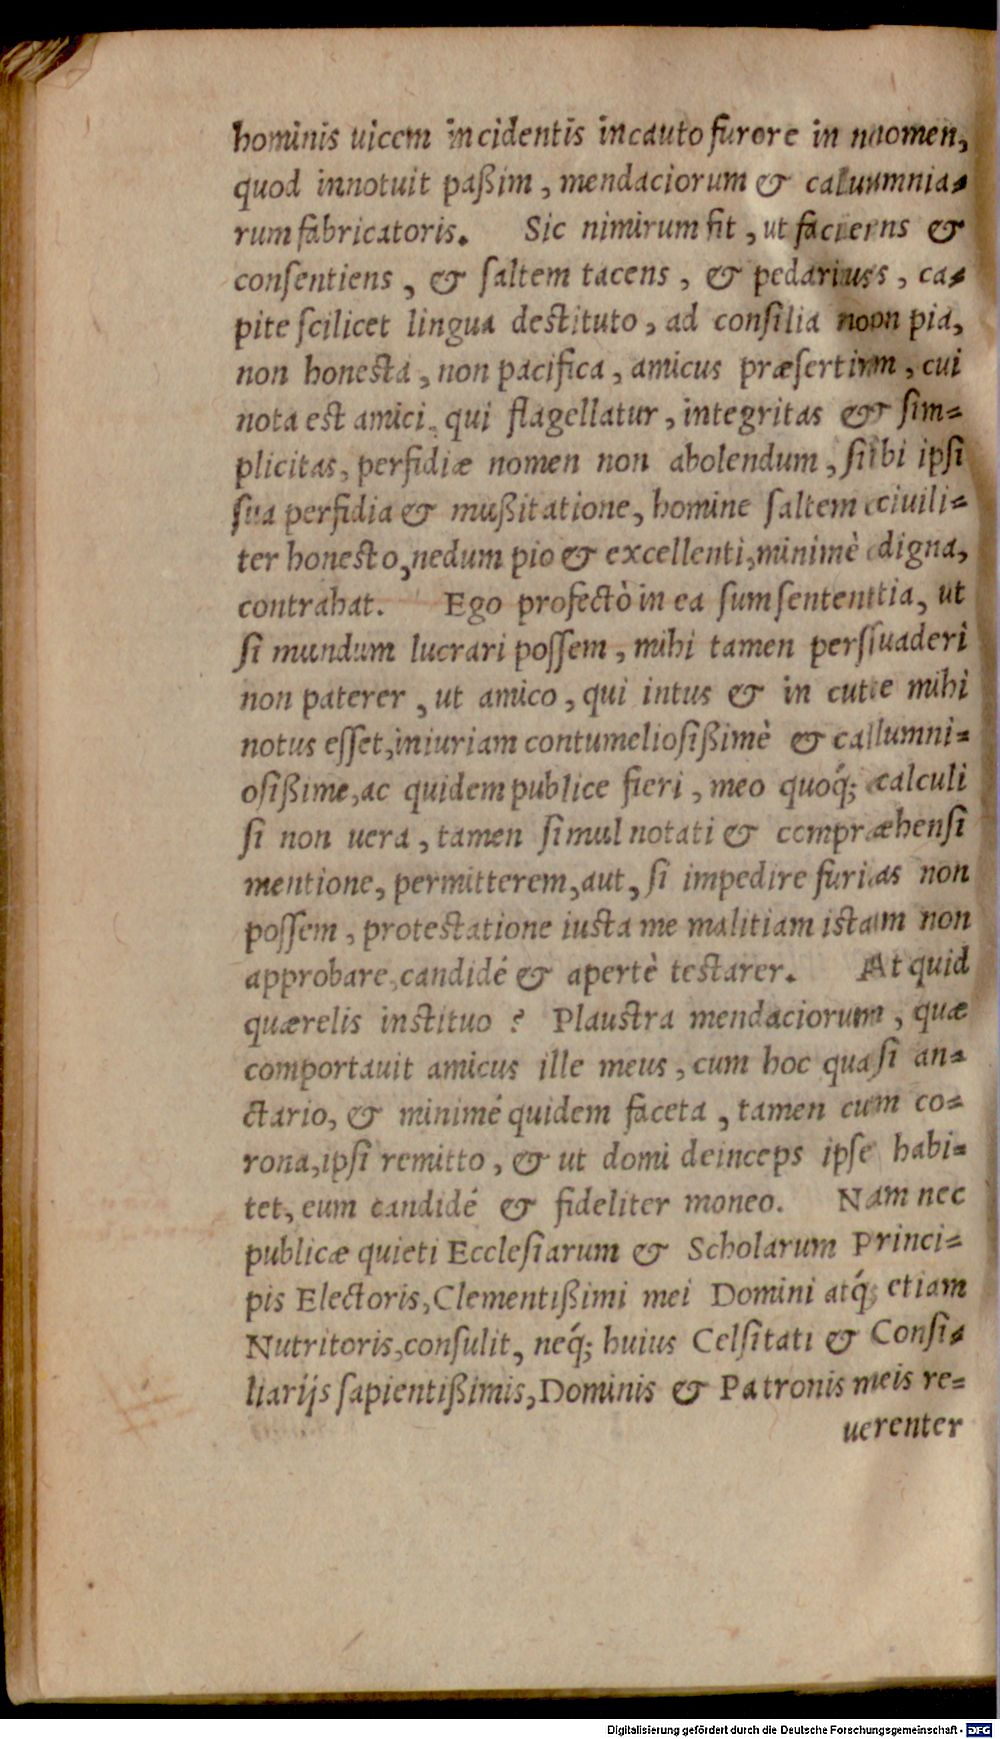 hominis uicem incidentis incauto furore in nomen,
quod innotuit paßim, mendaciorum & calumnia=
rum fabricatoris. Sic nimirum fit, ut faciens &
consentiens, & saltem tacens, & pedarius, ca=
pite scilicet lingua destituto, ad consilia non pia,
non honesta, non pacifica, amicus præsertim, cui
nota est amici, qui flagellatur, integritas & sim=
plicitas, perfidiæ nomen non abolendum, sibi ipsi
sua perfidia & mußitatione, homine saltem ciuili=
ter honesto, nedum pio & excellenti, minimè digna,
contrahat. Ego profectò in ea sum sententia, ut
si mundum lucrari possem, mihi tamen persuaderi
non paterer, ut amico, qui intus & in cute mihi
notus esset, iniuriam contumeliosißimè & calumni=
osißime, ac quidem publice fieri, meo quoq́; calculi
si non uera, tamen simul notati & compræhensi
mentione, permitterem, aut, si impedire furias non
possem, protestatione iusta me malitiam istam non
approbare, candidé & apertè testarer. At quid
quærelis instituo? Plaustra mendaciorum, quæ
comportauit amicus ille meus, cum hoc quasi an=
ctario, & minimé quidem faceta, tamen cum co=
rona, ipsi remitto, & ut domi deinceps ipse habi=
tet, eum candidé & fideliter moneo. Nam nec
publicæ quieti Ecclesiarum & Scholarum Princi=
pis Electoris, Clementißimi mei Domini atq́; etiam
Nutritoris, consulit, neq́; huius Celsitati & Consi=
liarijs sapientißimis, Dominis & Patronis meis re=
uerenter
Digitalisierung gefördert durch die Deutsche Forschungsgemeinschaft - DFG